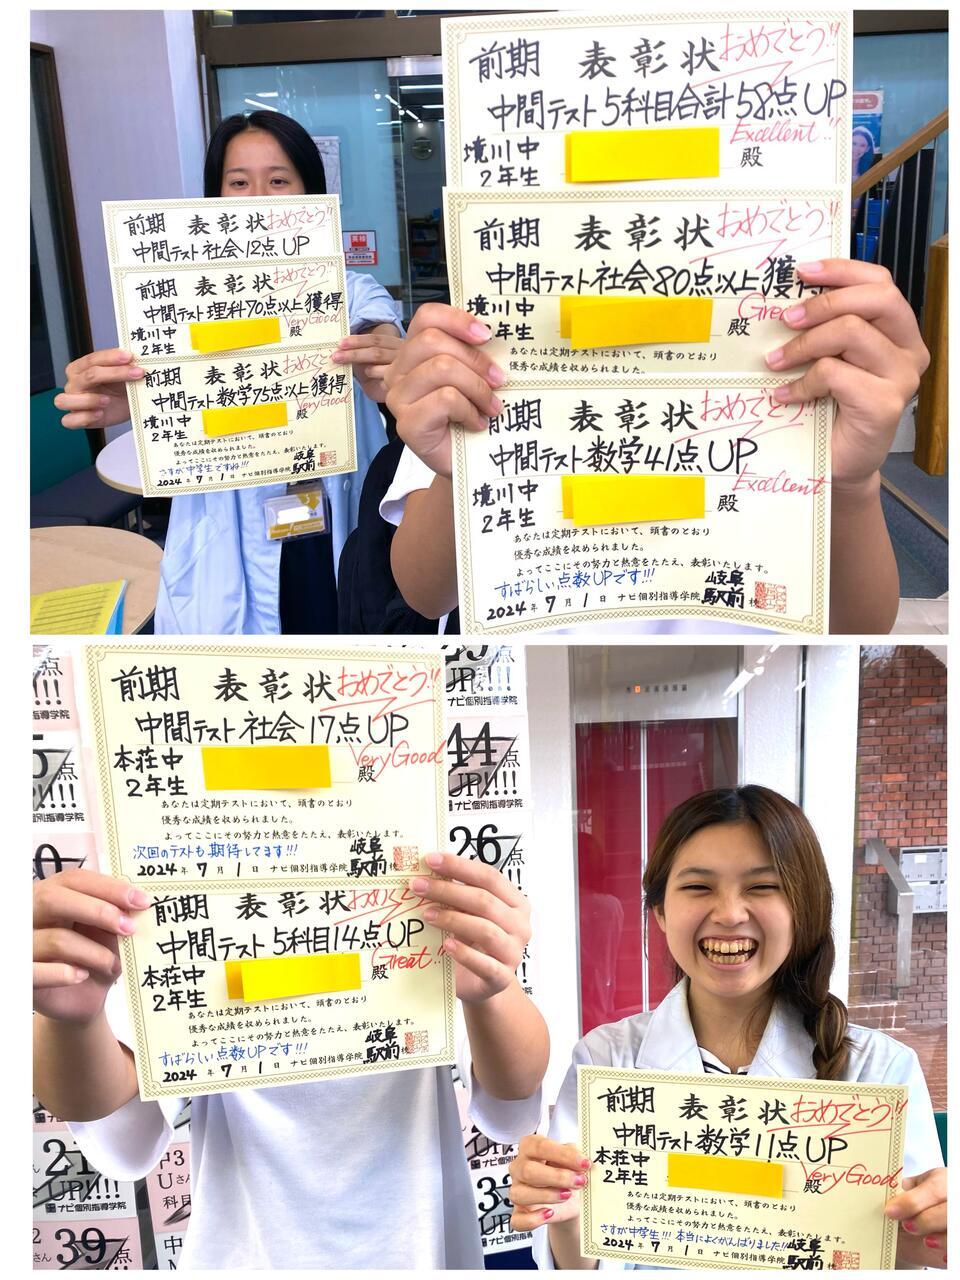 前期 表彰状 おめでとう!!
中間テスト 社会12点 UP
前期 表彰状 おめでとう!!
中間テスト 理科70点以上獲得
境川中
2年生
殿
Very Good
前期 表彰状 おめでとう!!
中間テスト 数学75点以上獲得
境川中
2年生
殿
Very Good
あなたは定期テストにおいて、頭書のとおり
優秀な成績を収められました。
よってここにその努力と熱意をたたえ、表彰いたします。
さすが中学生ですね!!!
2024年 7月 1日 ナビ個別指導学院 岐阜駅前校
英検
前期 表彰状 おめでとう!!
中間テスト 5科目合計58点UP
Excellent!!
境川中
2年生
殿
前期 表彰状 おめでとう!!
中間テスト 社会80点以上獲得
境川中
2年生
殿
あなたは定期テストにおいて、頭書のとおり
優秀な成績を収められました。
前期 表彰状 おめでとう!!
中間テスト 数学41点 UP
境川中
2年生
殿
Excellent
あなたは定期テストにおいて、頭書のとおり
優秀な成績を収められました。
よってここにその努力と熱意をたたえ、表彰いたします。
すばらしい点数UPです!!!
2024年 7月 1日 ナビ個別指導学院 岐阜駅前校
前期 表彰状 おめでとう!!
中間テスト 社会17点UP
本荘中
2年生
殿
Very Good
あなたは定期テストにおいて、頭書のとおり
優秀な成績を収められました。
よってここにその努力と熱意をたたえ、表彰いたします。
次回のテストも期待してます!!!
2024年 7月 1日 ナビ個別指導学院 岐阜駅前
前期 表彰状 おめでとう
中間テスト 5科目14点UP
本荘中
2年生
殿
Great!!
あなたは定期テストにおいて、頭書のとおり
優秀な成績を収められました。
よってここにその努力と熱意をたたえ、表彰いたします。
すばらしい点数UPです!!!
2024年 7月 1日 ナビ個別指導学院 岐阜駅前校
44点
UP!!!!
ナビ個別指導学院
26点
21
UP!!!!
39点
中3
Uさん
科目
33
ナビ個別指導学院
前期 表彰状 おめでとう!!
中間テスト 数学11点UP
本荘中
2年生
殿
Very Good
あなたは定期テストにおいて、頭書のとおり
優秀な成績を収められました。
よってここにその努力と熱意をたたえ、表彰いたします。
さすが中学生!!! 本当によくがんばりました!!
2024年 7月 1日 ナビ個別指導学院 岐阜駅前校